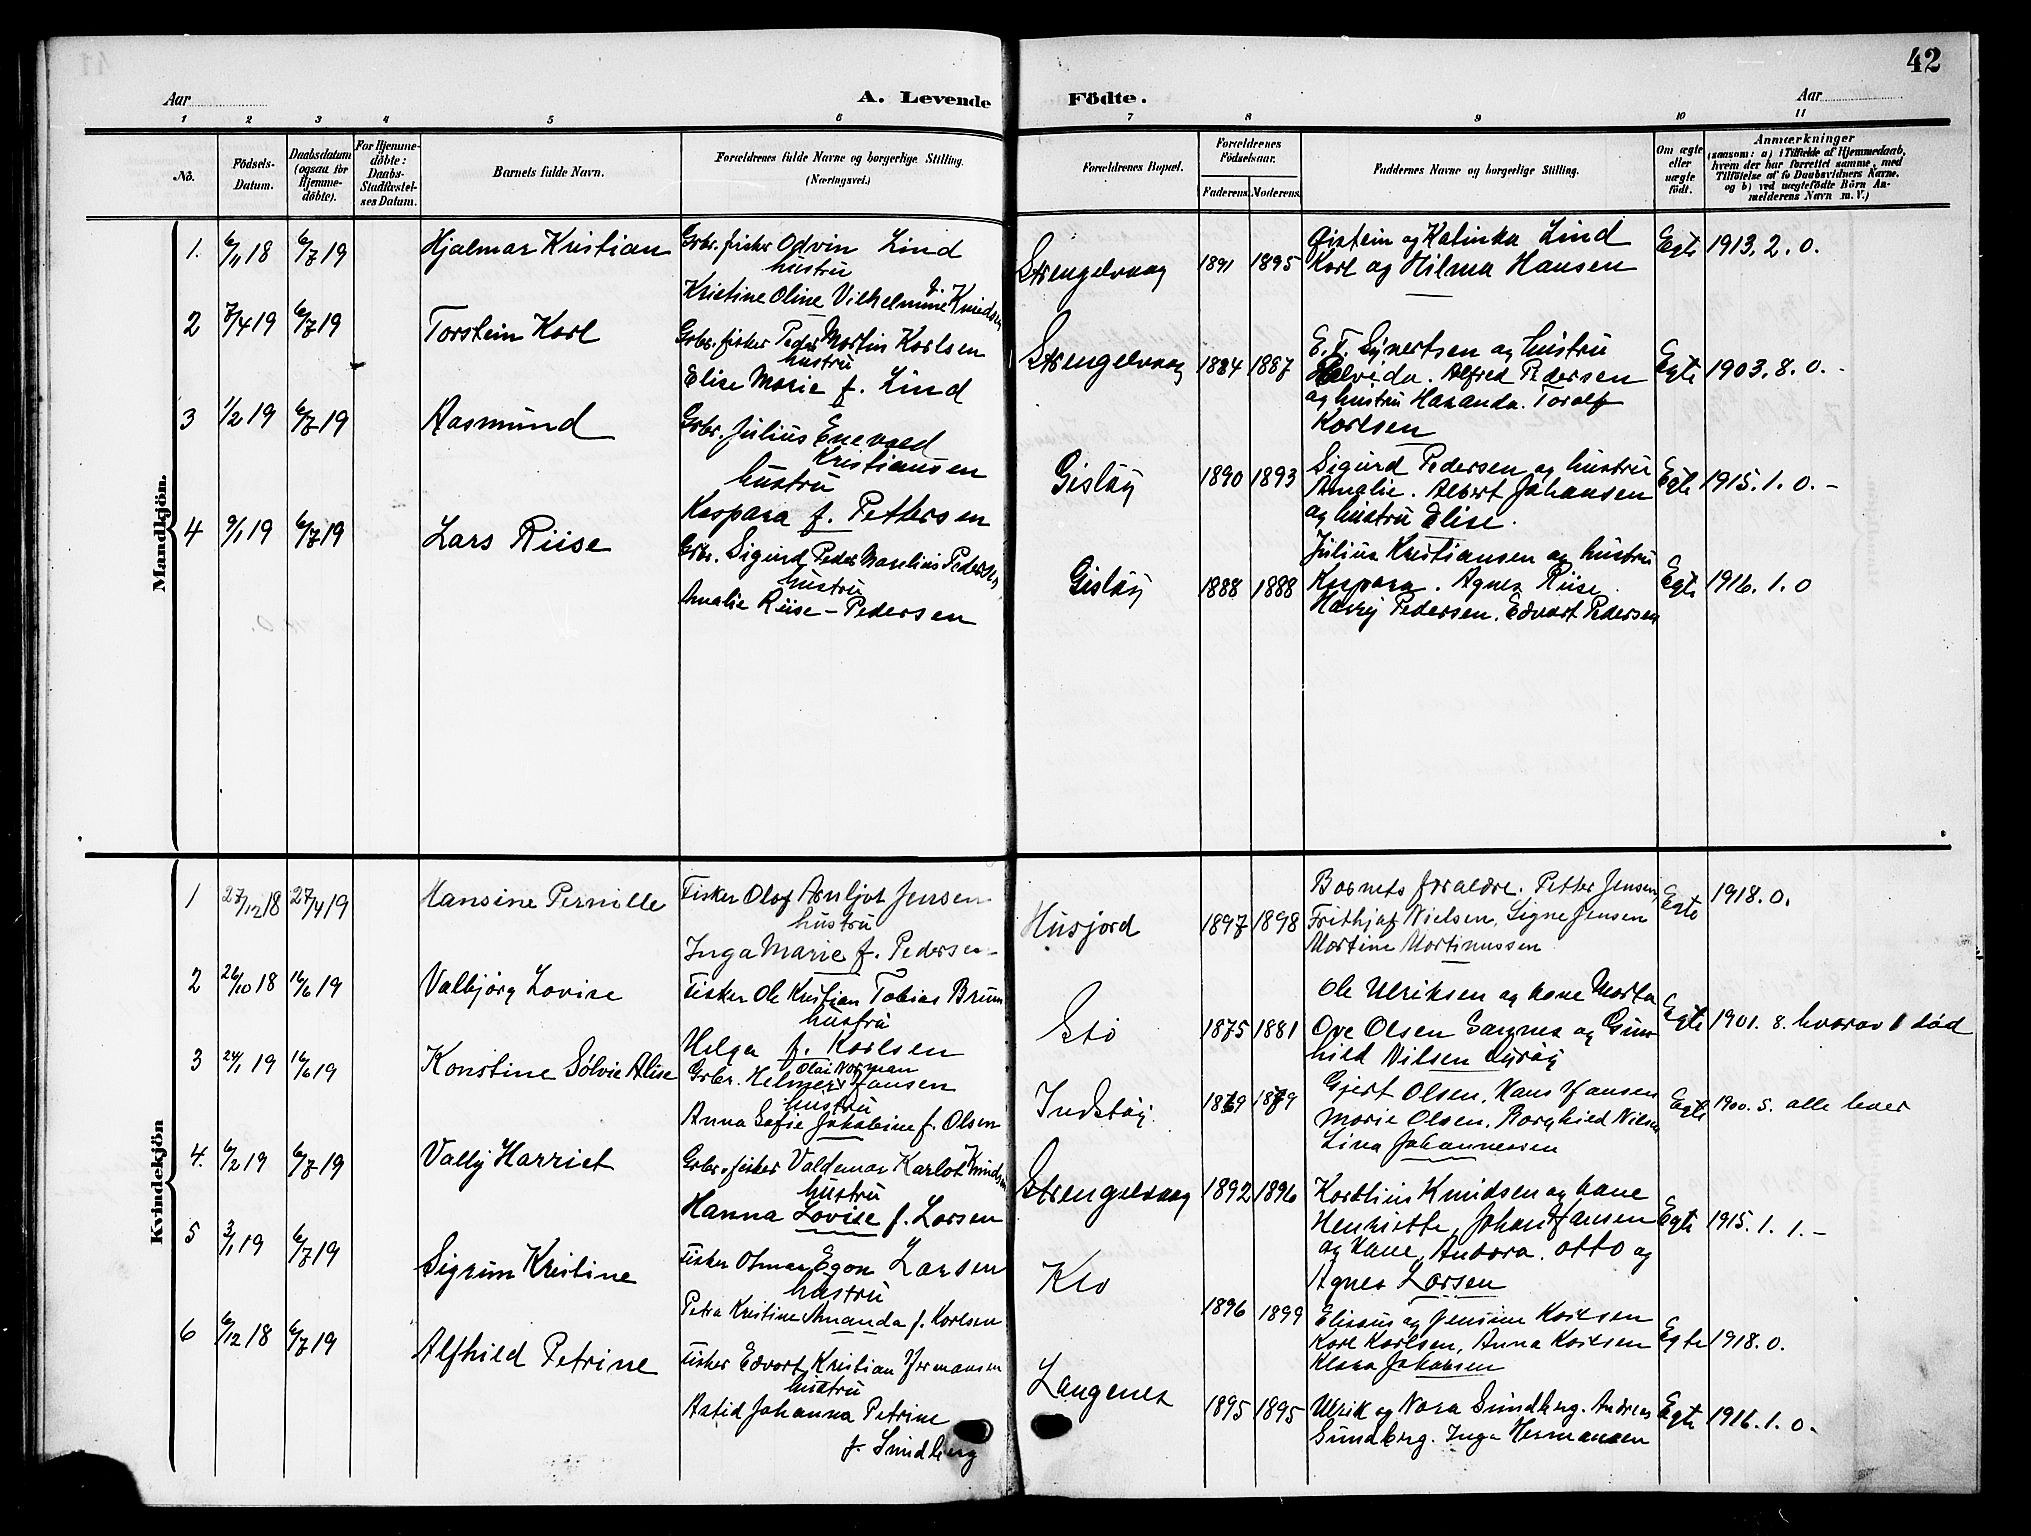 42
Aar
A. Levende
Födte.
Aar
1 2 3 4 5 6 7 8 9 10 11
No.
Födsels-
Datum.
Daabsdatum
(ogsaa for
Hjemme-
döbte).
For Hjemme-
döbte:
Daabs-
Stadfæstel-
ses Datum.
Barnets fulde Navn.
Forældrenes fulde Navne og borgerlige Stilling.
(Næringsvei.)
Forældrenes Bopæl.
Forældrenes
Födselsaar.
Faderens. Moderens.
Faddernes Navne og borgerlige Stilling.
Om ægte
eller
uægte
födt.
Anmærkninger
(saasom: a) i Tilfælde af Hjemmedaab,
hvem der har forrettet samme, med
Tilföielse af to Daabsvidners Navne.
og b) ved uægtefödte Börn An-
melderens Navn m. V.)
Mandkjön.
1. 6/11 18 6/7 19 Hjalmar Kristian
Grbr. fisker Odvin Lind
hustru
Kristine Oline Vilhelmine f. Knudsen
Strengelvaag 1891 1895
Øistein og Kalinka Lind
Karl og Hilma Hansen
Egte 1913. 2. 0.
2 7/4 19 6/7 19 Torstein Karl
Grbr. fisker Peder Martin Karlsen
hustru
Elise Marie f. Lind
Strengelvaag 1884 1887
E. T. Synertsen og hustru
Helvida. Alfred Pedersen
og hustru Hananda. Toralf
Karlsen
Egte 1903. 8. 0. -
3 1/2 19 6/7 19 Aasmund
Grbr. Julius Enevald
Kristiansen
hustru
Kaspara f. Pettersen
Gisløy 1890 1893
Sigurd Pedersen og hustru
Amalie. Albert Johansen
og hustru Elise.
Egte 1915. 1. 0. -
4 9/1 19 6/7 19 Lars Riise
Grbr. Sigurd Peder Marelius Pedersen
hustru
Amalie Riise - Pedersen
Gisløy 1888 1888
Julius Kristiansen og hustru
Kaspara. Agnes Riise
Harry Pedersen. Edvart Pedersen
Egte 1916. 1. 0
Kvindekjön
1 27/12 18 27/4 19 Hansine Pernille
Fisker Olaf Arnljot Jensen
hustru
Inga Marie f. Pedersen
Husjord 1897 1898
Barnets forældre. Petter Jensen,
Frithjof Nielsen, Signe Jensen
Martine Martinussen
Egte 1918. 0.
2 26/10 18 16/6 19 Valbjørg Lovise
Fisker Ole Kristian Tobias Brun
hustru
Helga f. Karlsen
Stø 1875 1881
Ole Ulriksen og kone Marta
Ove Olsen og Gun-
hild Nilsen
Egte 1901. 8. hvorav 1 død
3 24/1 19 16/6 19 Konstine Sølvie Alise
Olai Norman
Grbr. Helmer Hansen
hustru
Anna Sofie Jakobine f. Olsen
Indstøy 1869 1879
Gjert Olsen, Hans Hansen
Marie Olsen, Borghild Nilsen
Lina Johannessen
Egte 1900. 5. alle lever
4. 6/2 19 6/7 19 Vally Harriet
Grbr. fisker Valdemar Karlot Knudsen
hustru
Hanna Lovise f. Larsen
Strengelvaag 1892 1896
Karolius Knudsen og kone
Henriette, Johan Hansen
og kone, Andora. Otto og
Agnes Larsen
Egte 1915. 1. 1. -
5 3/1 19 6/7 19 Sigrun Kristine
Fisker Otmar Egon Larsen
hustru
Petra Kristine Amanda f. Karlsen
Klo 1896 1899
Eliseus og Jensine Karlsen
Karl Karlsen, Anna Karlsen
Klara Jakobsen
Egte 1918. 0.
6 6/12 18 6/7 19 Alfhild Petrine
Fisker Edvart Kristian Hermansen
hustru
Astid Johanna Petrine
f. Sundberg
Langenes 1895 1895
Ulrik og Nora Sundberg. Andreas
Sundberg. Inga Hermansen
Egte 1916. 1. 0.